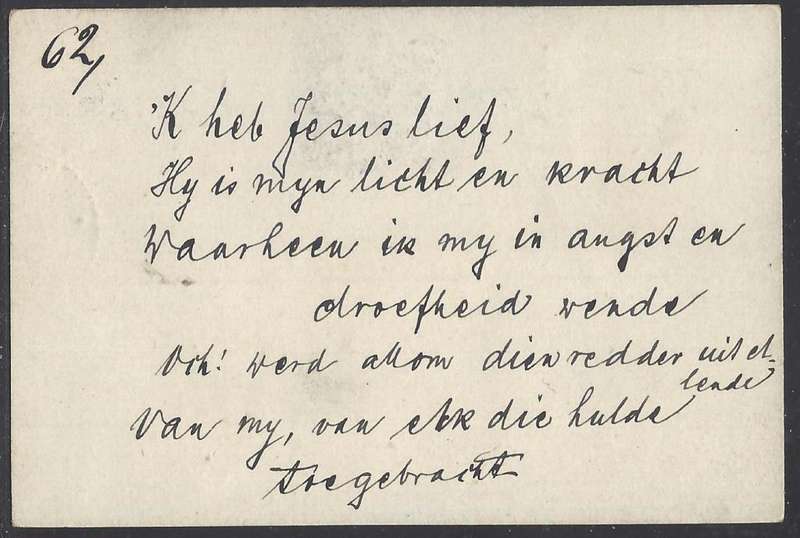 62,
'K heb Jesus lief,
Hy is myn licht en kracht
Waarheen ik my in angst en
droefheid wende
Och! werd allom dien redder uit el-
lende
Van my, van elk die hulde
toegebracht